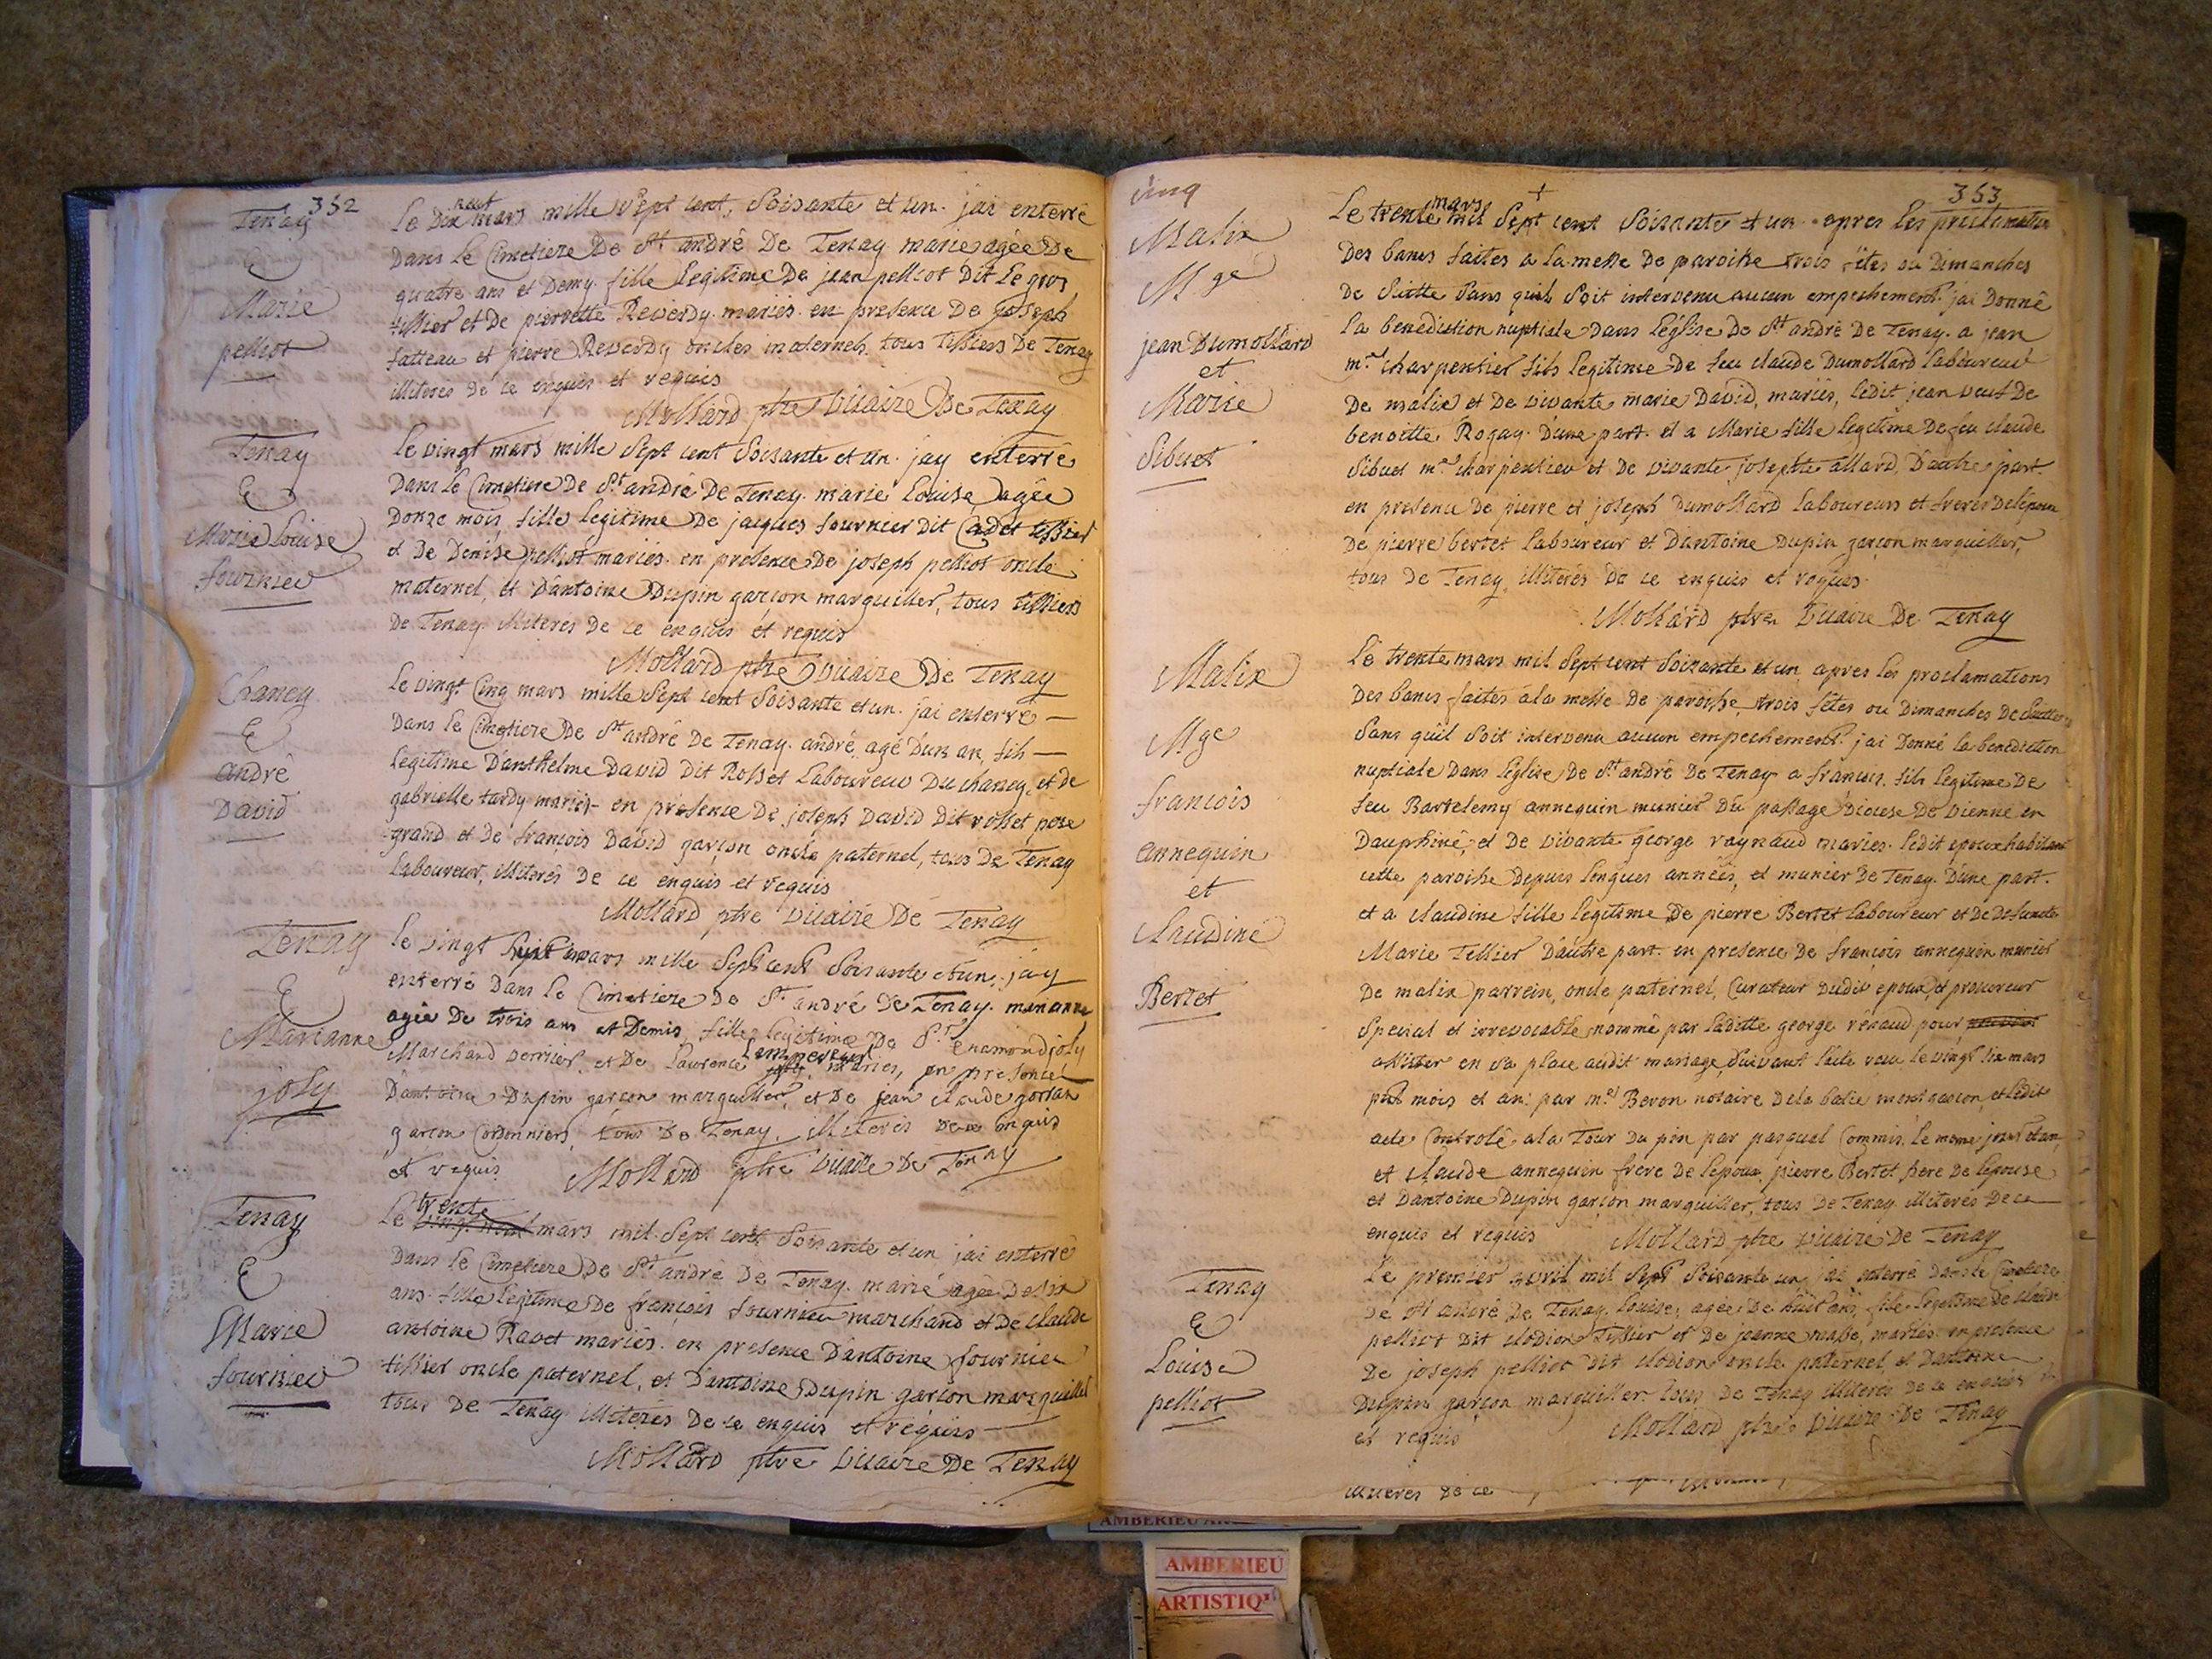 352
Tenay
E
Marie
pelliot
le Dix neuf mars mille Sept cent, Soisante et un. jai enterré
Dans le Cimetiere De St andré De Tenay marie agée De
quatre ans et Demy fille legitime De jean pelliot Dit Le gros
tissier et De pierrette Reverdy mariés. en presence De joseph
fatteau et pierre Reverdy oncles maternels. tous tissiers De Tenay
illiterés de ce enquis et requis
Mollard ptre vicaire De Tenay
Tenay
E
Marie Louise
fournier
le vingt mars mille Sept cent Soisante et un. jay enterré
Dans le Cimetiere De St andré De Tenay. marie Louise agée
Donze mois, fille legitime De jacques fournier dit Cadet tissier
et De Denise pelliot mariés. en presence De joseph pelliot oncle
maternel, et D'antoine Dupin garcon marguiller, tous tissiers
De Tenay. illiterés De ce enquis et requis
Mollard ptre vicaire De Tenay
Chaney
E
andré
David
le vingt Cinq mars mille Sept cent Soisante et un. jai enterré
Dans le Cimetiere De St andré De Tenay. andré agé D'un an, fils
legitime D'anthelme David Dit Rosset Laboureur Du chaney, et de
gabrielle tardy mariés en presence De joseph David Dit rosset pere
grand et De françois David garçon oncle paternel, tous De Tenay
laboureur, illiterés De ce enquis et requis
Mollard ptre vicaire De Tenay
Tenay
E
Marianne
joly
le vingt huit mars mille Sept cent Soisante et un, jay
enterré Dans le Cimetiere De St andré De Tenay. marianne
agée De trois ans et Demis fille legitime De Sr enamond joly
Marchand verrier, et De Laurence Lempereur mariés, en presence
D'antoine Dupin garçon marguiller, et De jean claude gorlan
garcon Cordonniers, tous De Tenay. illiterés De ce enquis
et requis Mollard ptre vicaire De Tenay
Tenay
E
Marie
fournier
le trente mars mil Sept cent Soisante et un jai enterré
Dans le Cimetiere De St andré De Tenay. marie agée De six
ans fille legitime De françois fournier marchand et De claude
antoine Ravet mariés. en presence D'antoine fournier
tissier oncle paternel, et D'antoine Dupin garcon marguiller
tous De Tenay illiterés De ce enquis et requis
Mollard ptre vicaire De Tenay
353
cinq
Malix
Mge
jean Dumollard
et
Marie
Sibuet
Le trente mars mil Sept cent Soisante et un apres les proclamation
Des bancs faites a la messe De paroisse trois fêtes ou Dimanches
De Suitte Sans quil Soit intervenu aucun empeschement. jai Donné
la benediction nuptiale Dans l'église De St andré De Tenay. a jean
mre charpentier fils legitime De feu claude Dumollard laboureur
De malix et De vivante marie David, mariés, ledit jean veuf De
benoitte Rogay. D'une part. et a Marie fille legitime De feu claude
Sibuet mre charpentier et De vivante josephte allard, D'autre part.
en presence De pierre et joseph Dumollard laboureurs et freres De l'époux
De pierre bertet laboureur et D'antoine Dupin garcon marguiller,
tous De Tenay. illiterés De ce enquis et requis.
Mollard ptre vicaire De Tenay
Malix
Mge
francois
annequin
et
claudine
Bertet
Le trente mars mil Sept cent Soisante et un, apres les proclamations
Des bancs faites à la messe De paroisse trois fêtes ou Dimanches De Suitte
Sans qu'il Soit intervenu aucun empeschement. jai Donné la benediction
nuptiale Dans l'église De St andré De Tenay a francois, fils legitime De
feu Bartelemy annequin munier Du passage Diocese De vienne en
Dauphiné, et De vivante george raynaud mariés. ledit epoux habitant
cette paroisse Depuis longues années, et munier De Tenay. D'une part.
et a claudine fille legitime De pierre Bertet laboureur et De Defuncte
Marie Tellier D'autre part. en presence De francois annequin munier
De malix parrein, oncle paternel, curateur Dudit epoux, et procureur
Special et irrevocable, nommé par laditte george rénaud pour
assister en sa place audit mariage, Suivant l'acte reçu le vingt six mars
pnt mois et an: par mre Beron notaire De la batie montgascon, et ledit
acte Controlé a la Tour Du pin par pasqual Commis. le même jour et an,
et claude annequin frere De l'epoux, pierre Bertet pere De lepouse
et D'antoine Dupin garçon marguillier, tous De Tenay illiterés De ce
enquis et requis Mollard ptre vicaire De Tenay
Tenay
E
Louise
pelliot
Le premier avril mil Sept Soisante un jai enterré Dans le Cimetiere
De St andré De Tenay. Louise, agée De huit ans, fille legitime de claude
pelliot Dit clodion Tissier et De jeanne masse, mariés. en presence
De joseph pelliot Dit clodion oncle paternel, et D'antoine
Dupin garçon marguiller tous De Tenay illiterés De ce enquis
et requis Mollard ptre vicaire De Tenay
De ce
AMBERIEU
AMBERIEU
ARTISTIQ